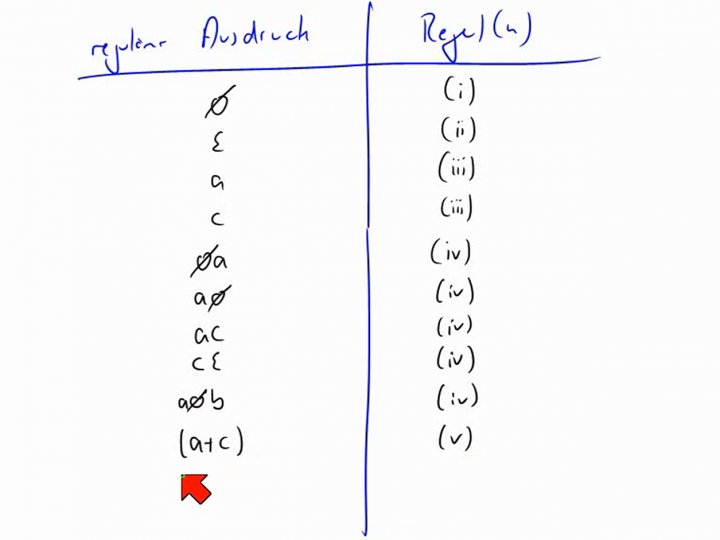 regulärer Ausdruck Regel(n)
∅ (i)
ε (ii)
a (iii)
c (iii)
∅a (iv)
a∅ (iv)
ac (iv)
cε (iv)
a∅b (iv)
(a+c) (v)